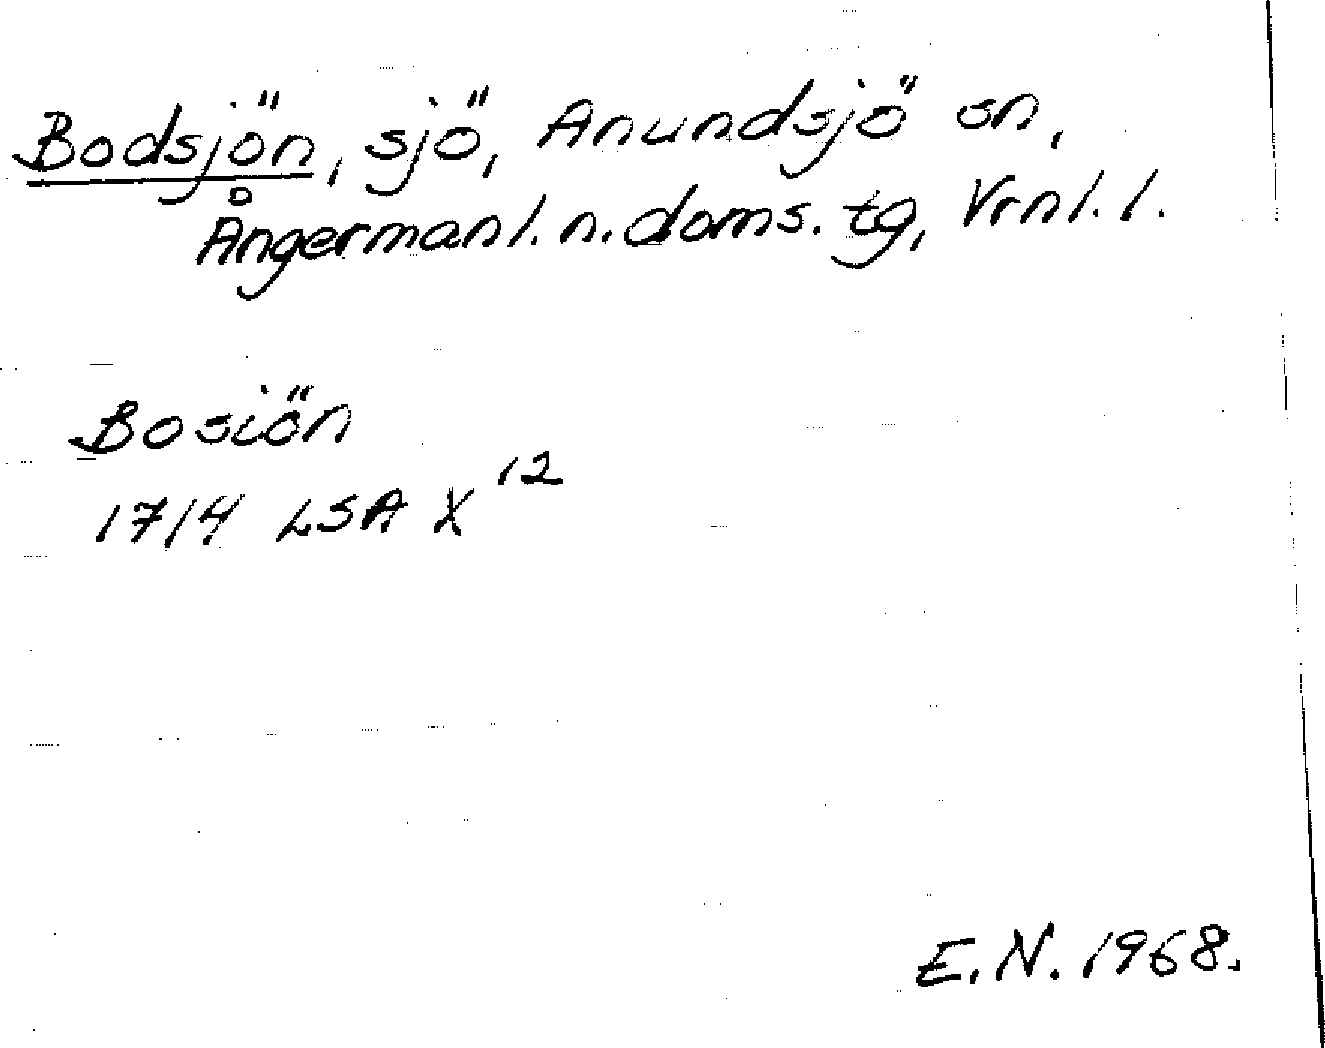 Bodsjön, sjö, Anundsjö sn,
Ångermanl. n. doms. tg, Vrnl. l.
Bosiön
1714 LSA X 12
E.N. 1968.